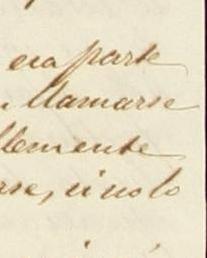 era parte
llamarse
lemente
rse, si no lo